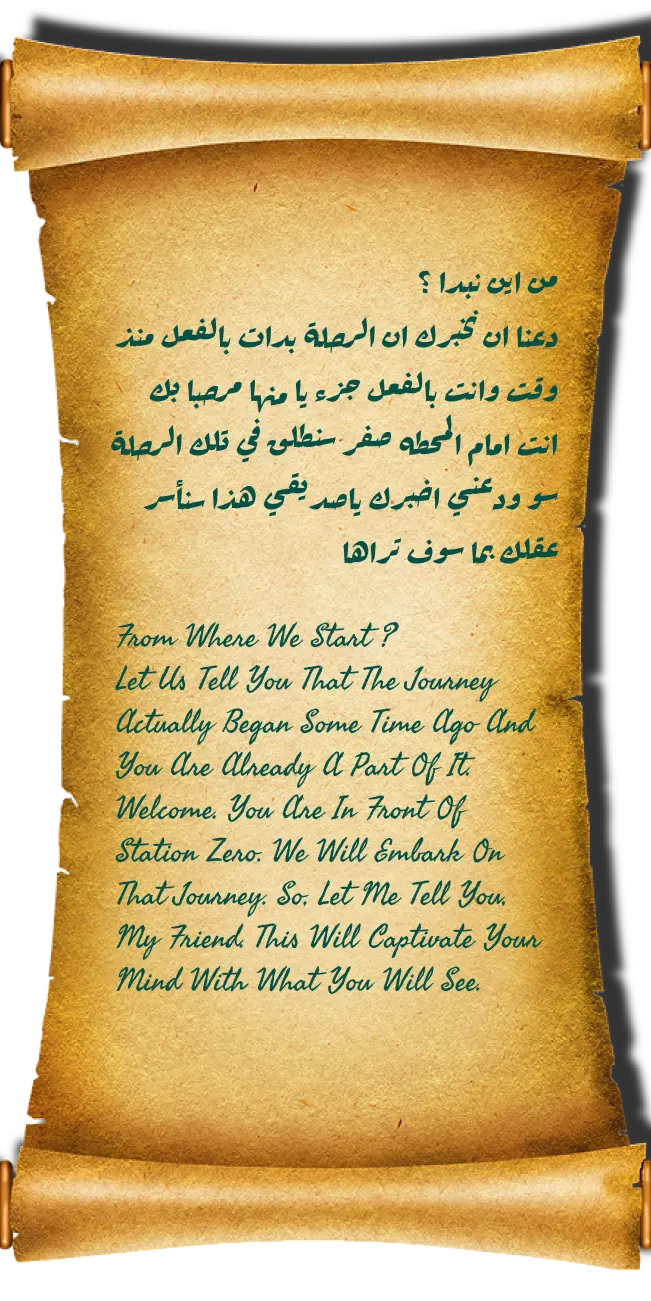 من اين نبدا ؟
دعنا ان نخبرك ان الرحلة بدات بالفعل منذ
وقت وانت بالفعل جزء يا منها مرحبا بك
انت امام المحطه صفر سننطلق في تلك الرحلة
سو ودعني اخبرك ياصديقي هذا سيأسر
عقلك بما سوف تراها
From Where We Start ?
Let Us Tell You That The Journey
Actually Began Some Time Ago And
You Are Already A Part Of It.
Welcome. You Are In Front Of
Station Zero. We Will Embark On
That Journey. So, Let Me Tell You,
My Friend, This Will Captivate Your
Mind With What You Will See.